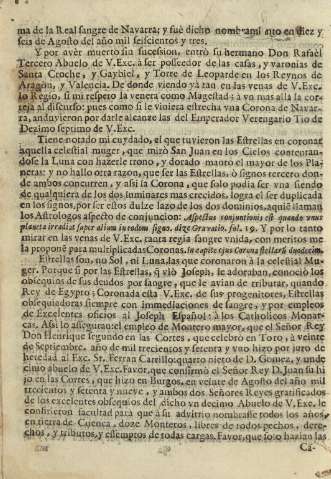 ma de la Real sangre de Navarra; y fuè dicho nombramiento en diez y
seis de Agosto del año mil seiscientos y tres.
Y por aver muerto sin sucession, entrò su hermano Don Rafael
Tercero Abuelo de V.Exc. à ser possedor de las casas, y varonias de
Santa Croche, y Gaybiel, y Torre de Leoparde en los Reynos de
Aragon, y Valencia. De donde viendo yà tan en las venas de V.Exc.
lo Regio, si mi respeto la venera como Magestad; à vn mas allà la cor-
teja al discurso: pues como si le viniera estrecha vna Corona de Nava-
rra, anduvieron por darle alcanze las del Emperador Verengario Tio de
Dezimo septimo de V.Exc.
Tiene notado mi cuydado, el que tuvieron las Estrellas en coronar
aquella celestial muger, que mirò San Juan en los Cielos contentan-
dose la Luna con hazerle trono, y dorado manto el mayor de los Pla-
netas: y no hallo otra razon, que ser las Estrellas, ò signos tercero don-
de ambos concurren, y assi la Corona, que solo podia ser vna siendo
de qualquiera de los dos luminares mas crecidos, logra el ser duplicada
en los signos, por ser estos dulze lazo de los dos dominios, aqui è llaman
los Astrologos aspecto de conjuncion: Aspectus conjunctionis est quando vnus
planeta irrediat super alium in eodem signo, dize Gravatio. fol. 19. Y por lo tanto
mirar en las venas de V.Exc. tanta regia sangre vnida, con meritos me
la propone para multiplicadas Coronas. In capite ejus Corona stellarũ duodecim.
Estrellas son, no Sol, ni Luna, las que coronaron à la celestial Mu-
ger. Porque si por las Estrellas, q̃ viò Joseph, le adoraban, conociò los
obsequios de sus deudos por sangre, que le avian de tributar, quando
Rey de Egypto; Coronada està V.Exc. de sus progenitores, Estrellas
obsequiadoras siempre con immediaciones de sangre, y por empleos
de Excelentes oficios al Joseph Español: à los Catholicos Monar-
cas. Assi lo asseguran el empleo de Montero mayor, que el Señor Rey
Don Henrique segundo en las Cortes, que celebrò en Toro, à veinte
de Septiembre, año de mil trecientos y setenta y vno hizo por juro de
heredad al Exc. Sr. Ferran Carrillo quarto nieto de D. Gomez, y vnde
cimo abuelo de V.Exc. Favor, que confirmò el Señor Rey D. Juan su hi
jo en las Cortes, que hizo en Burgos, en veinte de Agosto del año mil
trecientos y setenta y nueve, y ambos dos Señores Reyes gratificados
de los excelentes obsequios del dicho vn decimo Abuelo de V.Exc. le
consirieron facultad para que à su advitrio nombrasse todos los años,
en tierra de Cuenca, doze Monteros, libres de todos pechos, dere-
chos, y tributos, y essemptos de todas cargas. Favor, que solo havian las
Ca-